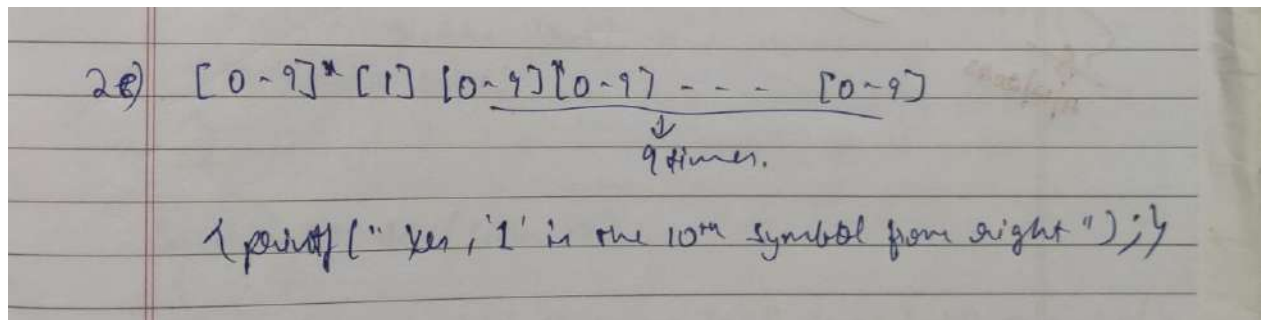 2e) [0-9]* [1] [0-9][0-9] - - - [0-9]
9 times.
{printf(" Yes, '1' is the 10th symbol from right ");}